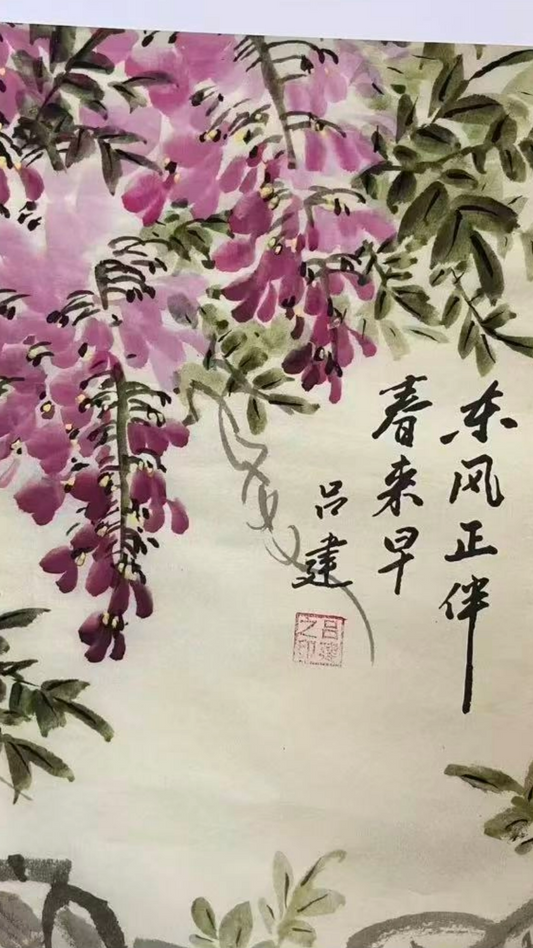 东风正伴
春来早
吕建
吕建之印